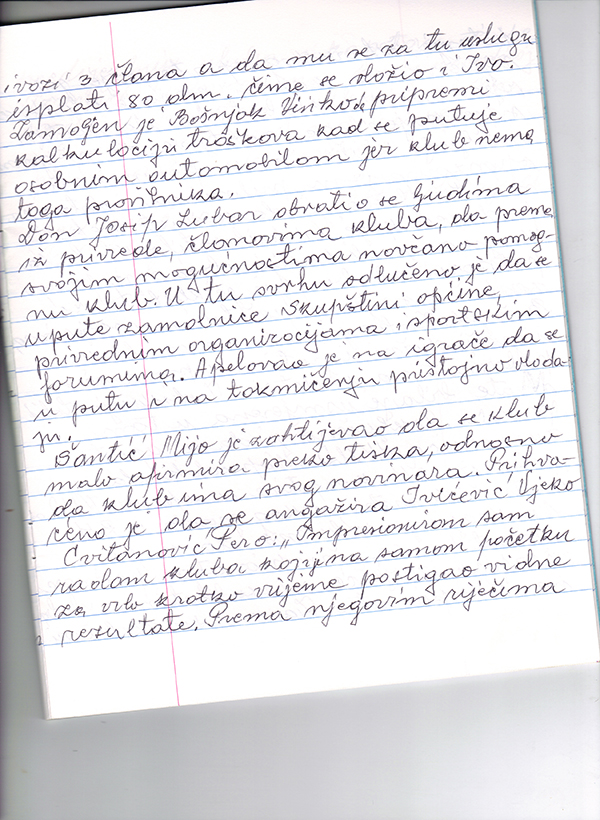 i vozi 3 člana a da mu se za tu uslugu
isplati 80 din. čime se složio i Ivo.
Zamoljen je Bošnjak Vinko da pripremi
kalkulaciju troškova kad se putuje
osobnim automobilom jer klub nema
toga pravilnika.
Don Josip Lubar obratio se ljudima
iz privrede, članovima kluba, da prema
svojim mogućnostima novčano pomog-
nu klub. U tu svrhu odlučeno je da se
upute zamolnice Skupštini općine,
privrednim organizacijama i sportskim
forumima. Apelovao je na igrače da se
u putu i na takmičenju pristojno vlada-
ju.
Šantić Mijo je zahtijevao da se klub
malo afirmira preko tiska, odnosno
da klub ima svog novinara. Prihva-
ćeno je da se angažira Ivičević Vjeko
Cvitanović Pero: „Impresioniram sam
radom kluba koji je na samom početku
za vrlo kratko vrijeme postigao vidne
rezultate. Prema njegovim riječima